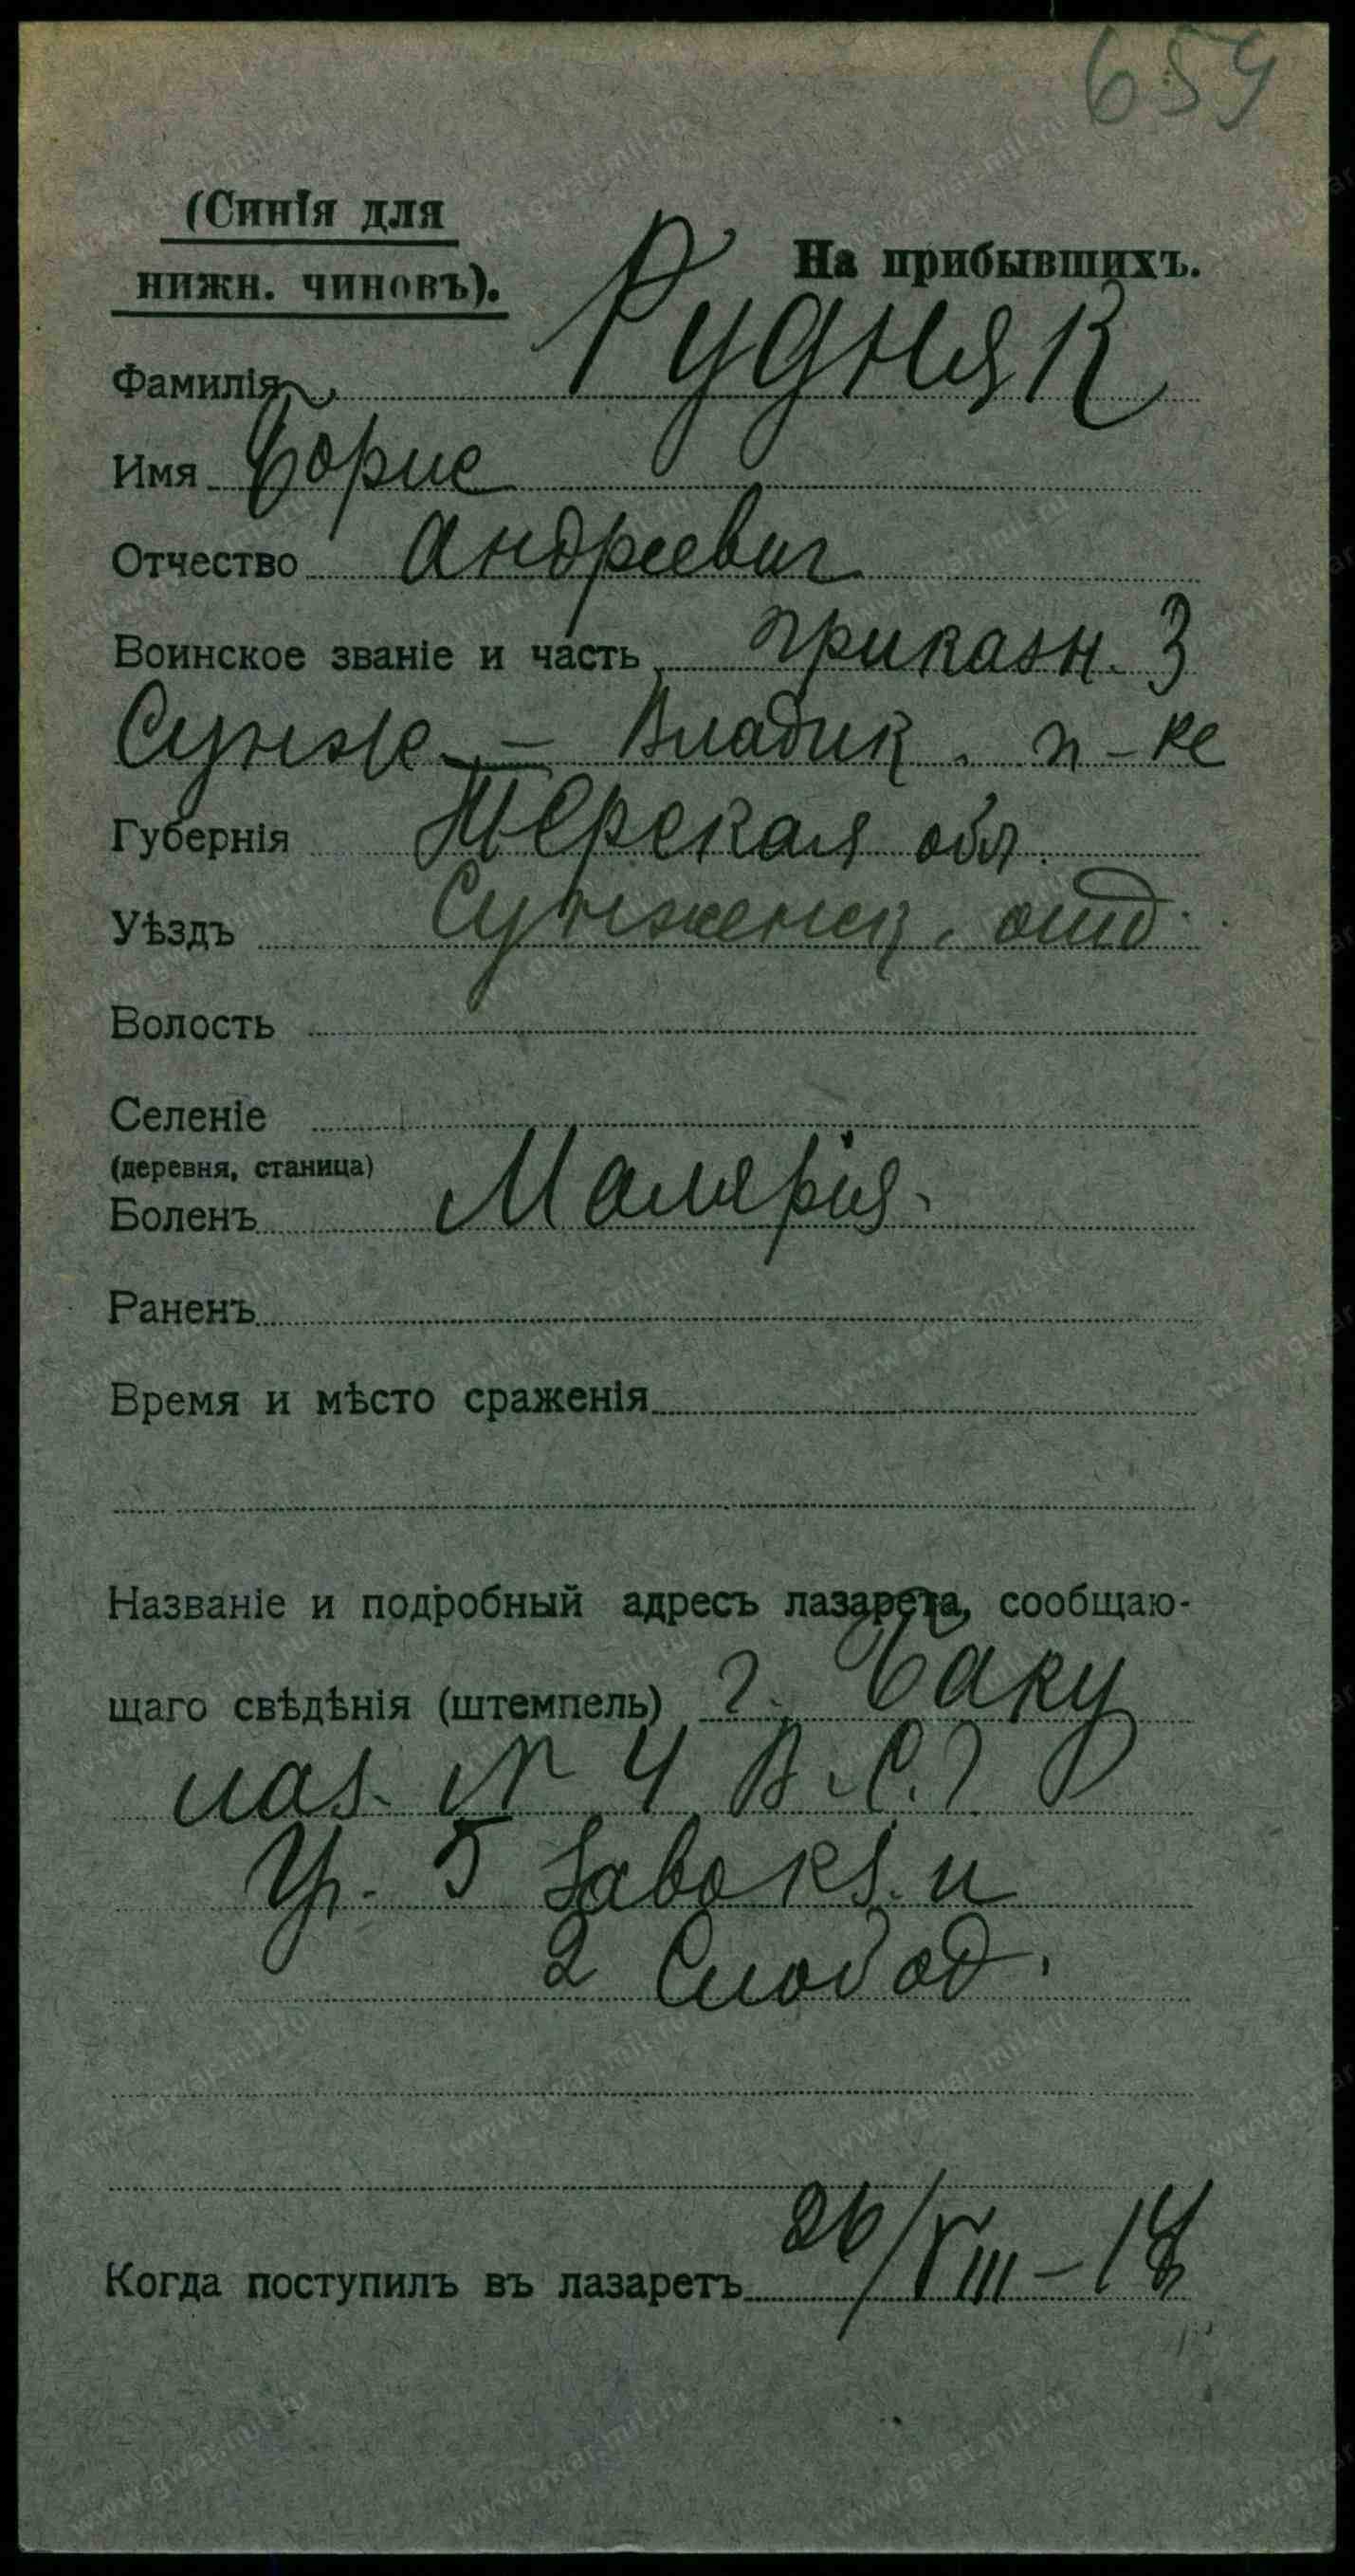 659
(Синія для
нижн. чиновъ).
На прибывшихъ.
Фамилія Рудняк
Имя Борис
Отчество Андреевич
Воинское званіе и часть приказн. 3
Сунж. - Владик. п-ка
Губернія Терская обл.
Уѣздъ Сунженск. отд.
Волость
Селеніе
(деревня, станица)
Боленъ Малярія.
Раненъ
Время и мѣсто сраженія
Названіе и подробный адресъ лазарета, сообщаю-
щаго свѣдѣнія (штемпель) г. Баку
лаз. № 4 В.С.Г
Уг. 5 Завокз. и
2 Слобод.
Когда поступилъ въ лазаретъ 26/VIII-